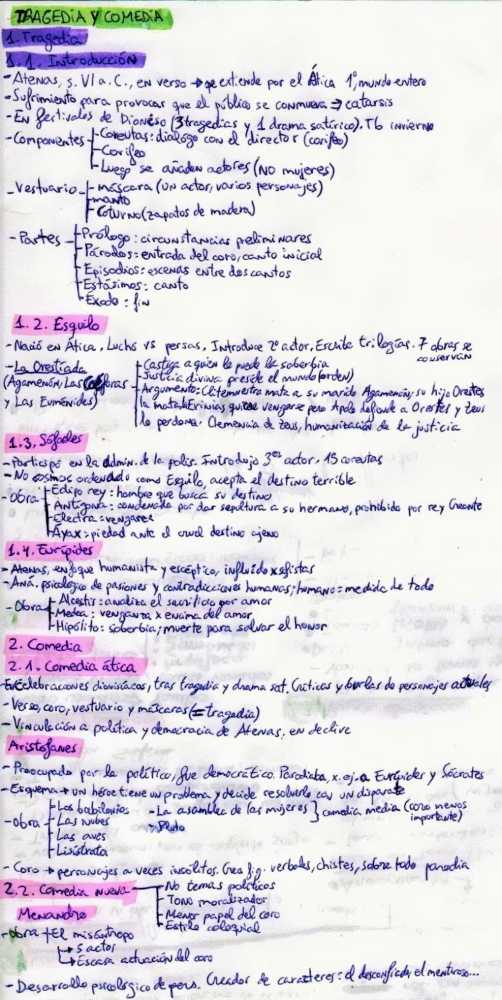 TRAGEDIA Y COMEDIA
1. Tragedia
1.1. Introducción
- Atenas, s. VI a. C., en verso → se extiende por el Ática 1º, mundo entero
- Sufrimiento para provocar que el público se conmueva → catarsis
- En festivales de Dioniso (3 tragedias y 1 drama satírico). Tb invierno
- Componentes - Coreutas: diálogo con el director (corifeo)
- Corifeo
- Luego se añaden actores (NO mujeres)
- Vestuario - máscara (un actor, varios personajes)
- manto
- Coturno (zapatos de madera)
- Partes - Prólogo: circunstancias preliminares
- Párodos: entrada del coro, canto inicial
- Episodios: escenas entre dos cantos
- Estásimos: canto
- Éxodo: fin
1.2. Esquilo
- Nació en Ática. Lucha vs persas. Introduce 2º actor. Escribe trilogías. 7 obras se conservan
- La Orestíada - Castiga a quien le puede la soberbia
(Agamenón, Las Coéforas - Justicia divina preside el mundo (orden)
y Las Euménides) - Argumento: Clitemnestra mata a su marido Agamenón, su hijo Orestes
la mata. Erinias quieren vengarse pero Apolo defiende a Orestes y Zeus
lo perdona. Clemencia de Zeus, humanización de la justicia
1.3. Sófocles
- Participó en la admin. de la polis. Introdujo 3er actor. 15 coreutas
- No cosmos ordenado como Esquilo, acepta el destino terrible
- Obra - Edipo rey: hombre que busca su destino
- Antígona: condenada por dar sepultura a su hermano, prohibido por rey Creonte
- Electra: venganza
- Áyax: piedad ante el cruel destino ajeno
1.4. Eurípides
- Atenas, enfoque humanista y escéptico, influido x sofistas
- Aná. psicológico de pasiones y contradicciones humanas; humano = medida de todo
- Obra - Alcestis: analiza el sacrificio por amor
- Medea: venganza x encima del amor
- Hipólito: soberbia; muerte para salvar el honor
2. Comedia
2.1. Comedia ática
- En celebraciones dionisíacas, tras tragedia y drama sat. Críticas y burlas de personajes actuales
- Verso, coro, vestuario y máscaras (= tragedia)
- Vinculación a política y democracia de Atenas, en declive
Aristófanes
- Preocupado por la política, fue democrático. Parodiaba, x. ej. a Eurípides y Sócrates
- Esquema → un héroe tiene un problema y decide resolverlo con un disparate
- Obra - Los babilonios - La asamblea de las mujeres } comedia media (coro menos importante)
- Las nubes - Pluto
- Las aves
- Lisístrata
- Coro → personajes a veces insólitos. Crea j.g. verbales, chistes, sobre todo parodia
2.2. Comedia nueva - No temas políticos
- Tono moralizador
- Menor papel del coro
- Estilo coloquial
Menandro
- Obra - El misántropo
↳ 5 actos
↳ Escasa actuación del coro
- Desarrollo psicológico de pers. Creador de caracteres: el desconfiado, el mentiroso...